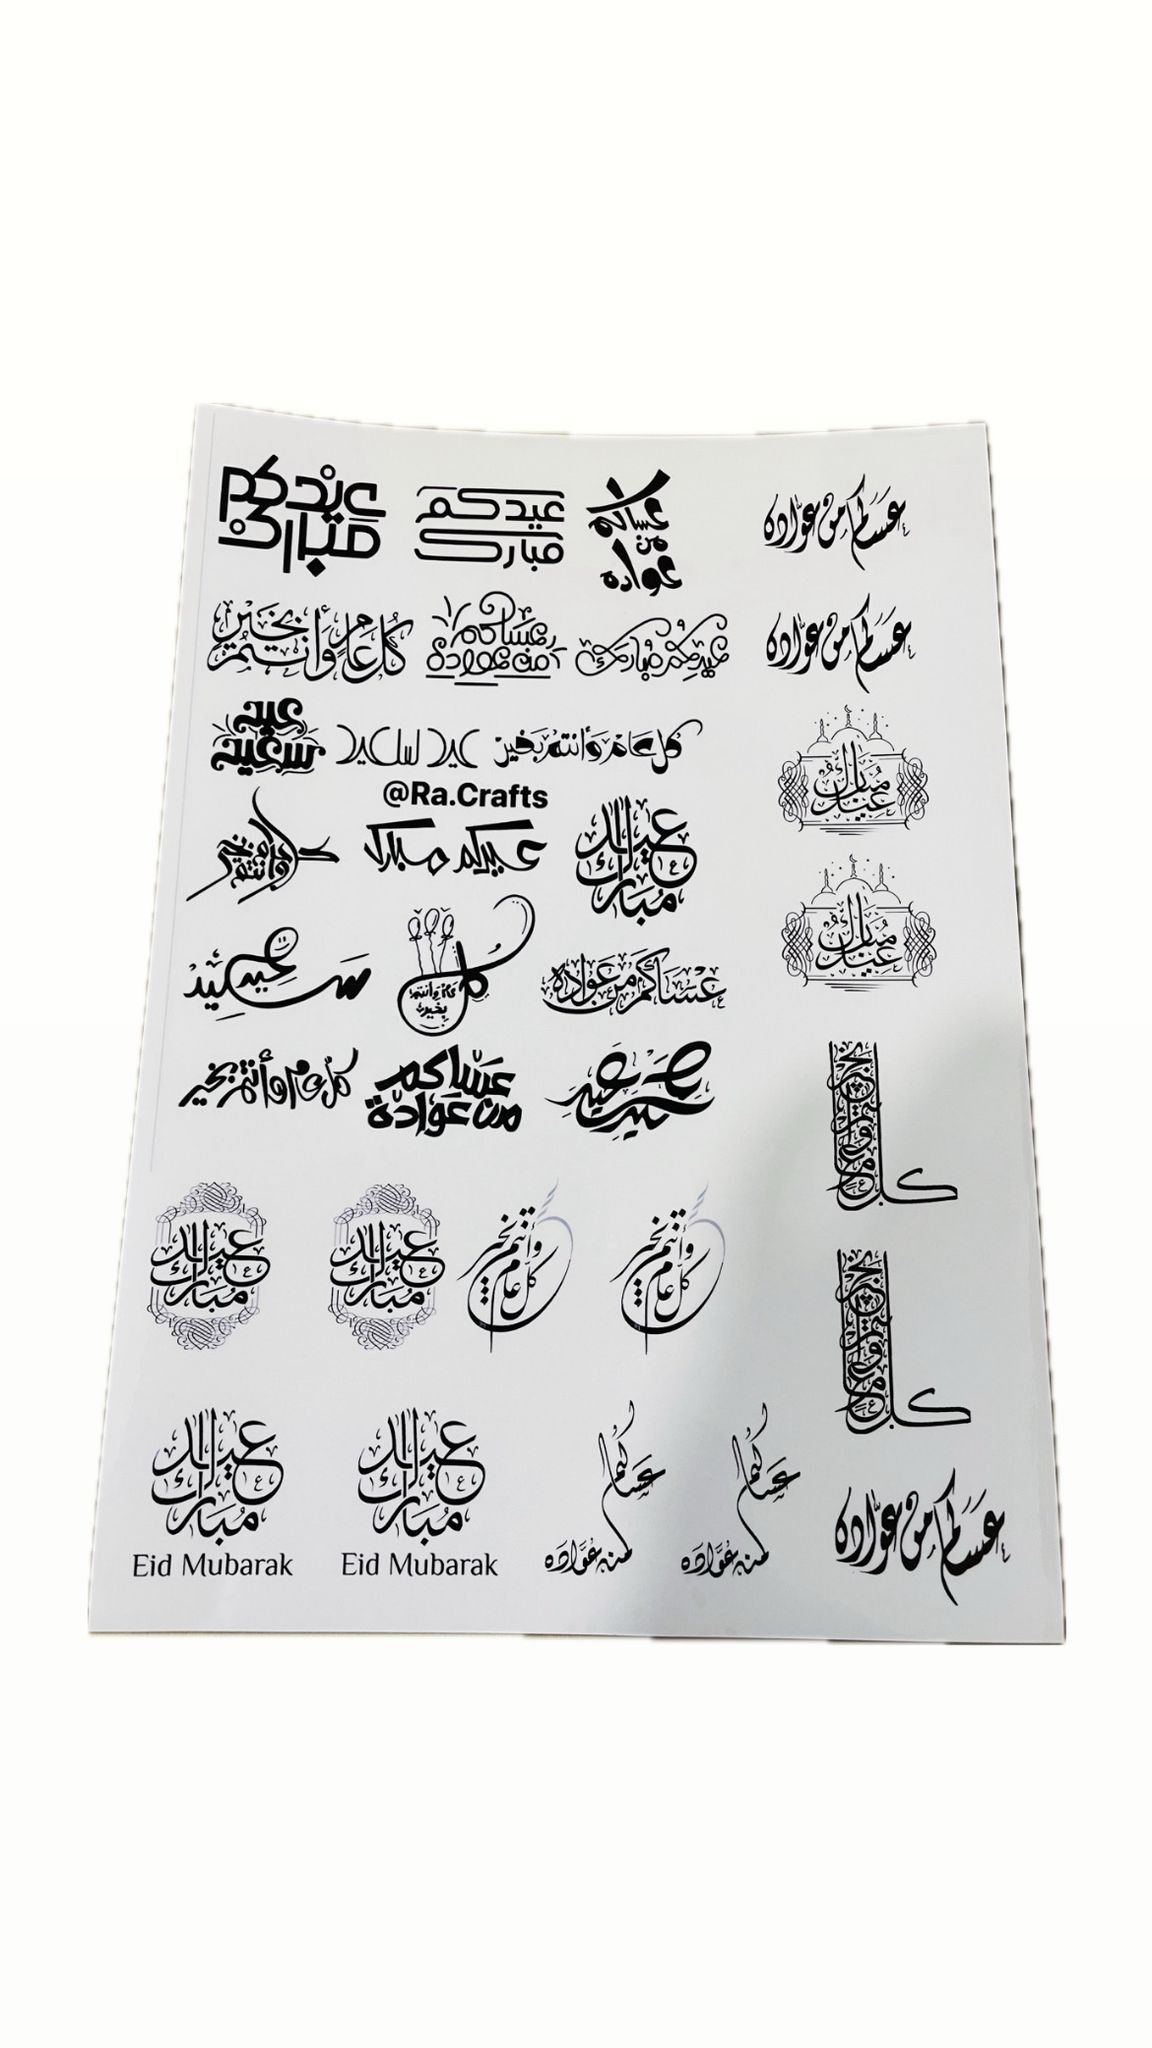 عيدكم
مبارك
عيدكم
مبارك
عساكم
من
عواده
عساكم من عوّاده
كُل عَام وَأنتُم بخَيْر
عساكم
من عواده
عيدكم مبارك
عساكم من عوّاده
عيد
سعيد
عيد سعيد
كل عام وأنتم بخير
@Ra.Crafts
عيد مُبارك
كل عام وأنتم بخير
عيدكم مبارك
عيد
مُبارك
عيد مُبارك
عيد سعيد
كل
عام وأنتم
بخير
عَسَاكُم مِن عَوَادَه
كل عام وأنتم بخير
عساكم
من عوادة
عيد سعيد
كل عام وأنتم بخير
عيد
مُبَارك
عيد
مُبَارك
كل عام
وأنتم بخير
كل عام
وأنتم بخير
كل عام وأنتم بخير
عيد
مُبَارك
Eid Mubarak
عيد
مُبَارك
Eid Mubarak
عساكم
من عوَّاده
عساكم
من عوَّاده
عساكم من عوّاده